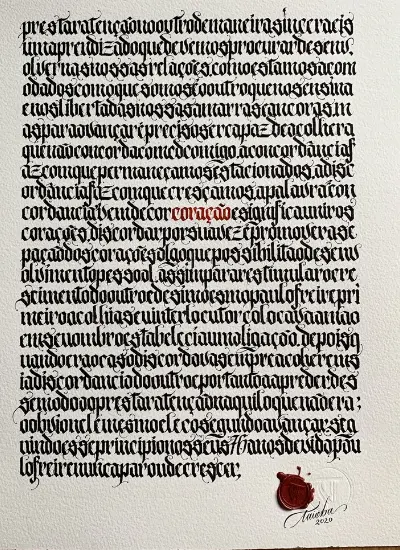 prestaratençãoooutrodemaneirasinceraeis
umaprendizadoquedevemosprocurardesenv
olvernasnossasrelações.comoestamosacom
odadoscomoquesomoséooutroquenosensina
enoslibertadasnossasamarraseancoras.m
asparaavançaréprecisosercapazdeacolhera
quenãoconcordacomedcomigo.aconcordânciaf
azcomquepermaneçamosestacionados.adisc
ordânciafazcomquecresçamos.apalavracon
cordanciavemdecorcoraçãoesignificauniros
corações.discordarporsuavezépromoverase
paçãodoscoraçõesalgoquepossibilitaodesenv
olvimentopessoal.assimpararestimularocre
scimentodooutroedesimesmopaulofreirepri
meiroacolhiaseuinterlocutorecolocavaamão
emseuombroestabeleciaumaligação.depoisq
uandoeraocasodiscordavasempreacolherems
iadiscordanciadooutroeportantoaaprederdes
semodoaoprestaratençãonaquiloquenadera;
uindoesseprincipionosseus
ulofreirenuncaparoudecrescer;
2020